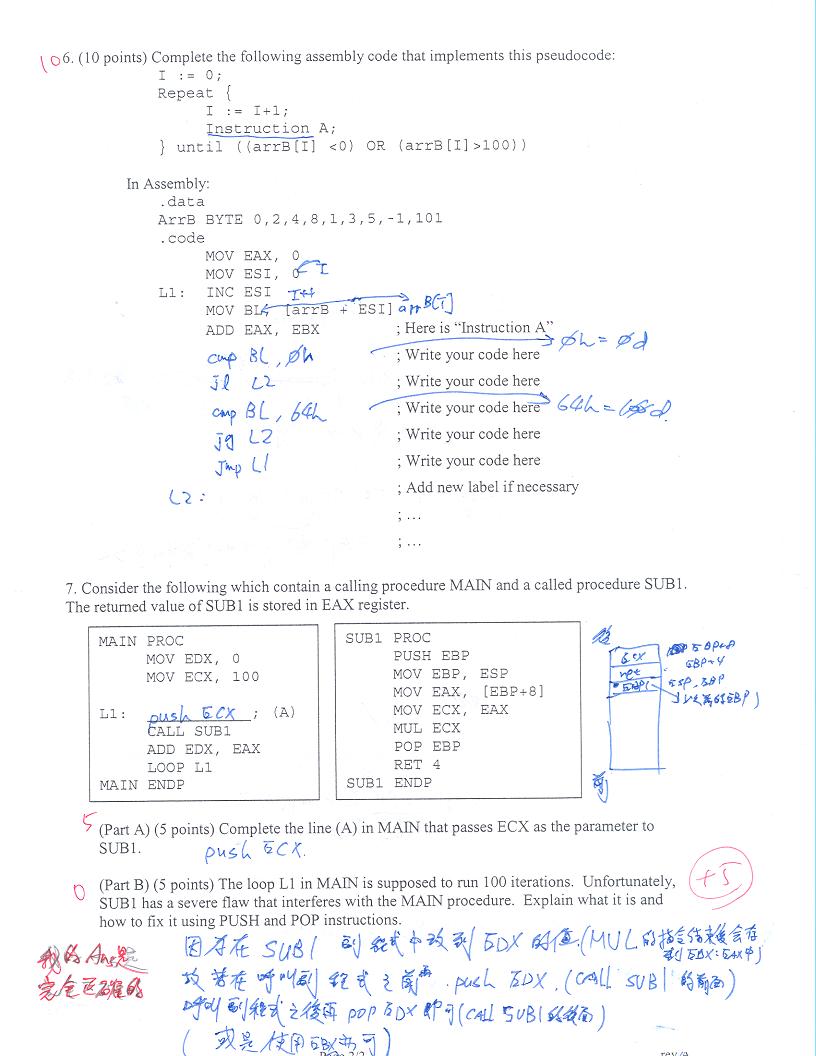 10 6. (10 points) Complete the following assembly code that implements this pseudocode:
I := 0;
Repeat {
I := I+1;
Instruction A;
} until ((arrB[I] <0) OR (arrB[I]>100))
In Assembly:
.data
ArrB BYTE 0,2,4,8,1,3,5,-1,101
.code
MOV EAX, 0
MOV ESI, 0 I
L1: INC ESI I++
MOV BL, [arrB + ESI] arrB[I]
ADD EAX, EBX ; Here is “Instruction A”
cmp BL, 0h ; Write your code here 0h = 0d
jl L2 ; Write your code here
cmp BL, 64h ; Write your code here 64h = 100d
jg L2 ; Write your code here
jmp L1 ; Write your code here
L2: ; Add new label if necessary
; ...
; ...
7. Consider the following which contain a calling procedure MAIN and a called procedure SUB1.
The returned value of SUB1 is stored in EAX register.
MAIN PROC
MOV EDX, 0
MOV ECX, 100
L1: push ECX ; (A)
CALL SUB1
ADD EDX, EAX
LOOP L1
MAIN ENDP
SUB1 PROC
PUSH EBP
MOV EBP, ESP
MOV EAX, [EBP+8]
MOV ECX, EAX
MUL ECX
POP EBP
RET 4
SUB1 ENDP
ECX EBP+8
ret EBP+4
EBP ESP, EBP
5 (Part A) (5 points) Complete the line (A) in MAIN that passes ECX as the parameter to
SUB1. push ECX.
0 (Part B) (5 points) The loop L1 in MAIN is supposed to run 100 iterations. Unfortunately, +5
SUB1 has a severe flaw that interferes with the MAIN procedure. Explain what it is and
how to fix it using PUSH and POP instructions.
因為在 SUB1 副程式中改到 EDX 的值.(MUL的指令結束後會存到EDX:EAX中)
故若在呼叫副程式之前 push EDX. (CALL SUB1 的前面)
呼叫副程式之後再 POP EDX 即可(CALL SUB1的後面)
(或是使用EBX亦可)
我的Ans是
完全正確的